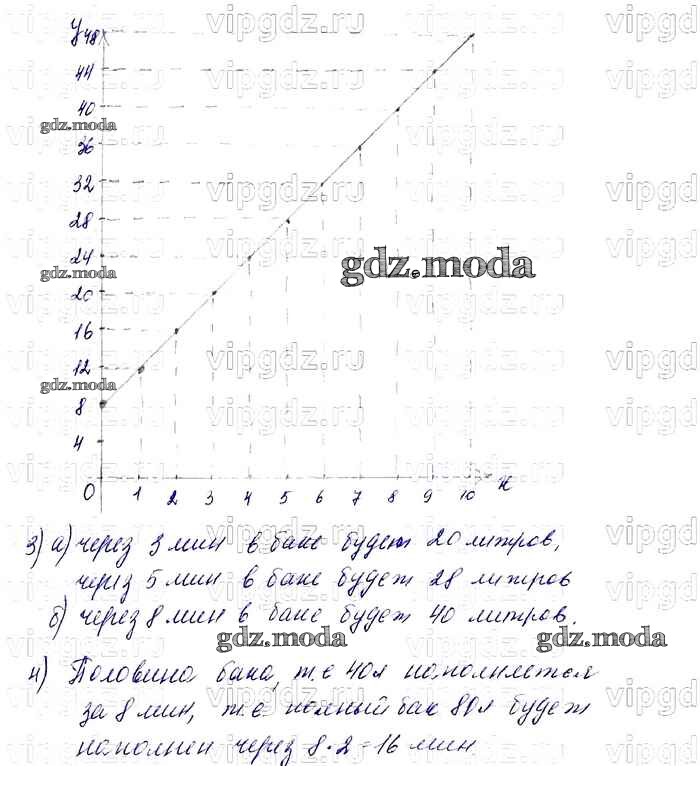 vipgdz.ru vipgdz.ru vipgdz.ru vipgd
у
48
44
40
gdz.moda
36
32
28
24
gdz.moda
gdz.moda
20
16
12
gdz.moda
8
4
0 1 2 3 4 5 6 7 8 9 10 х
3) а) через 3 мин в баке будет 20 литров,
через 5 мин в баке будет 28 литров
б) через 8 мин в баке будет 40 литров.
gdz.moda gdz.moda
4) Половина бака, т.е 40л наполняется
за 8 мин, т.е. полный бак 80л будет
наполнен через 8·2=16 мин.